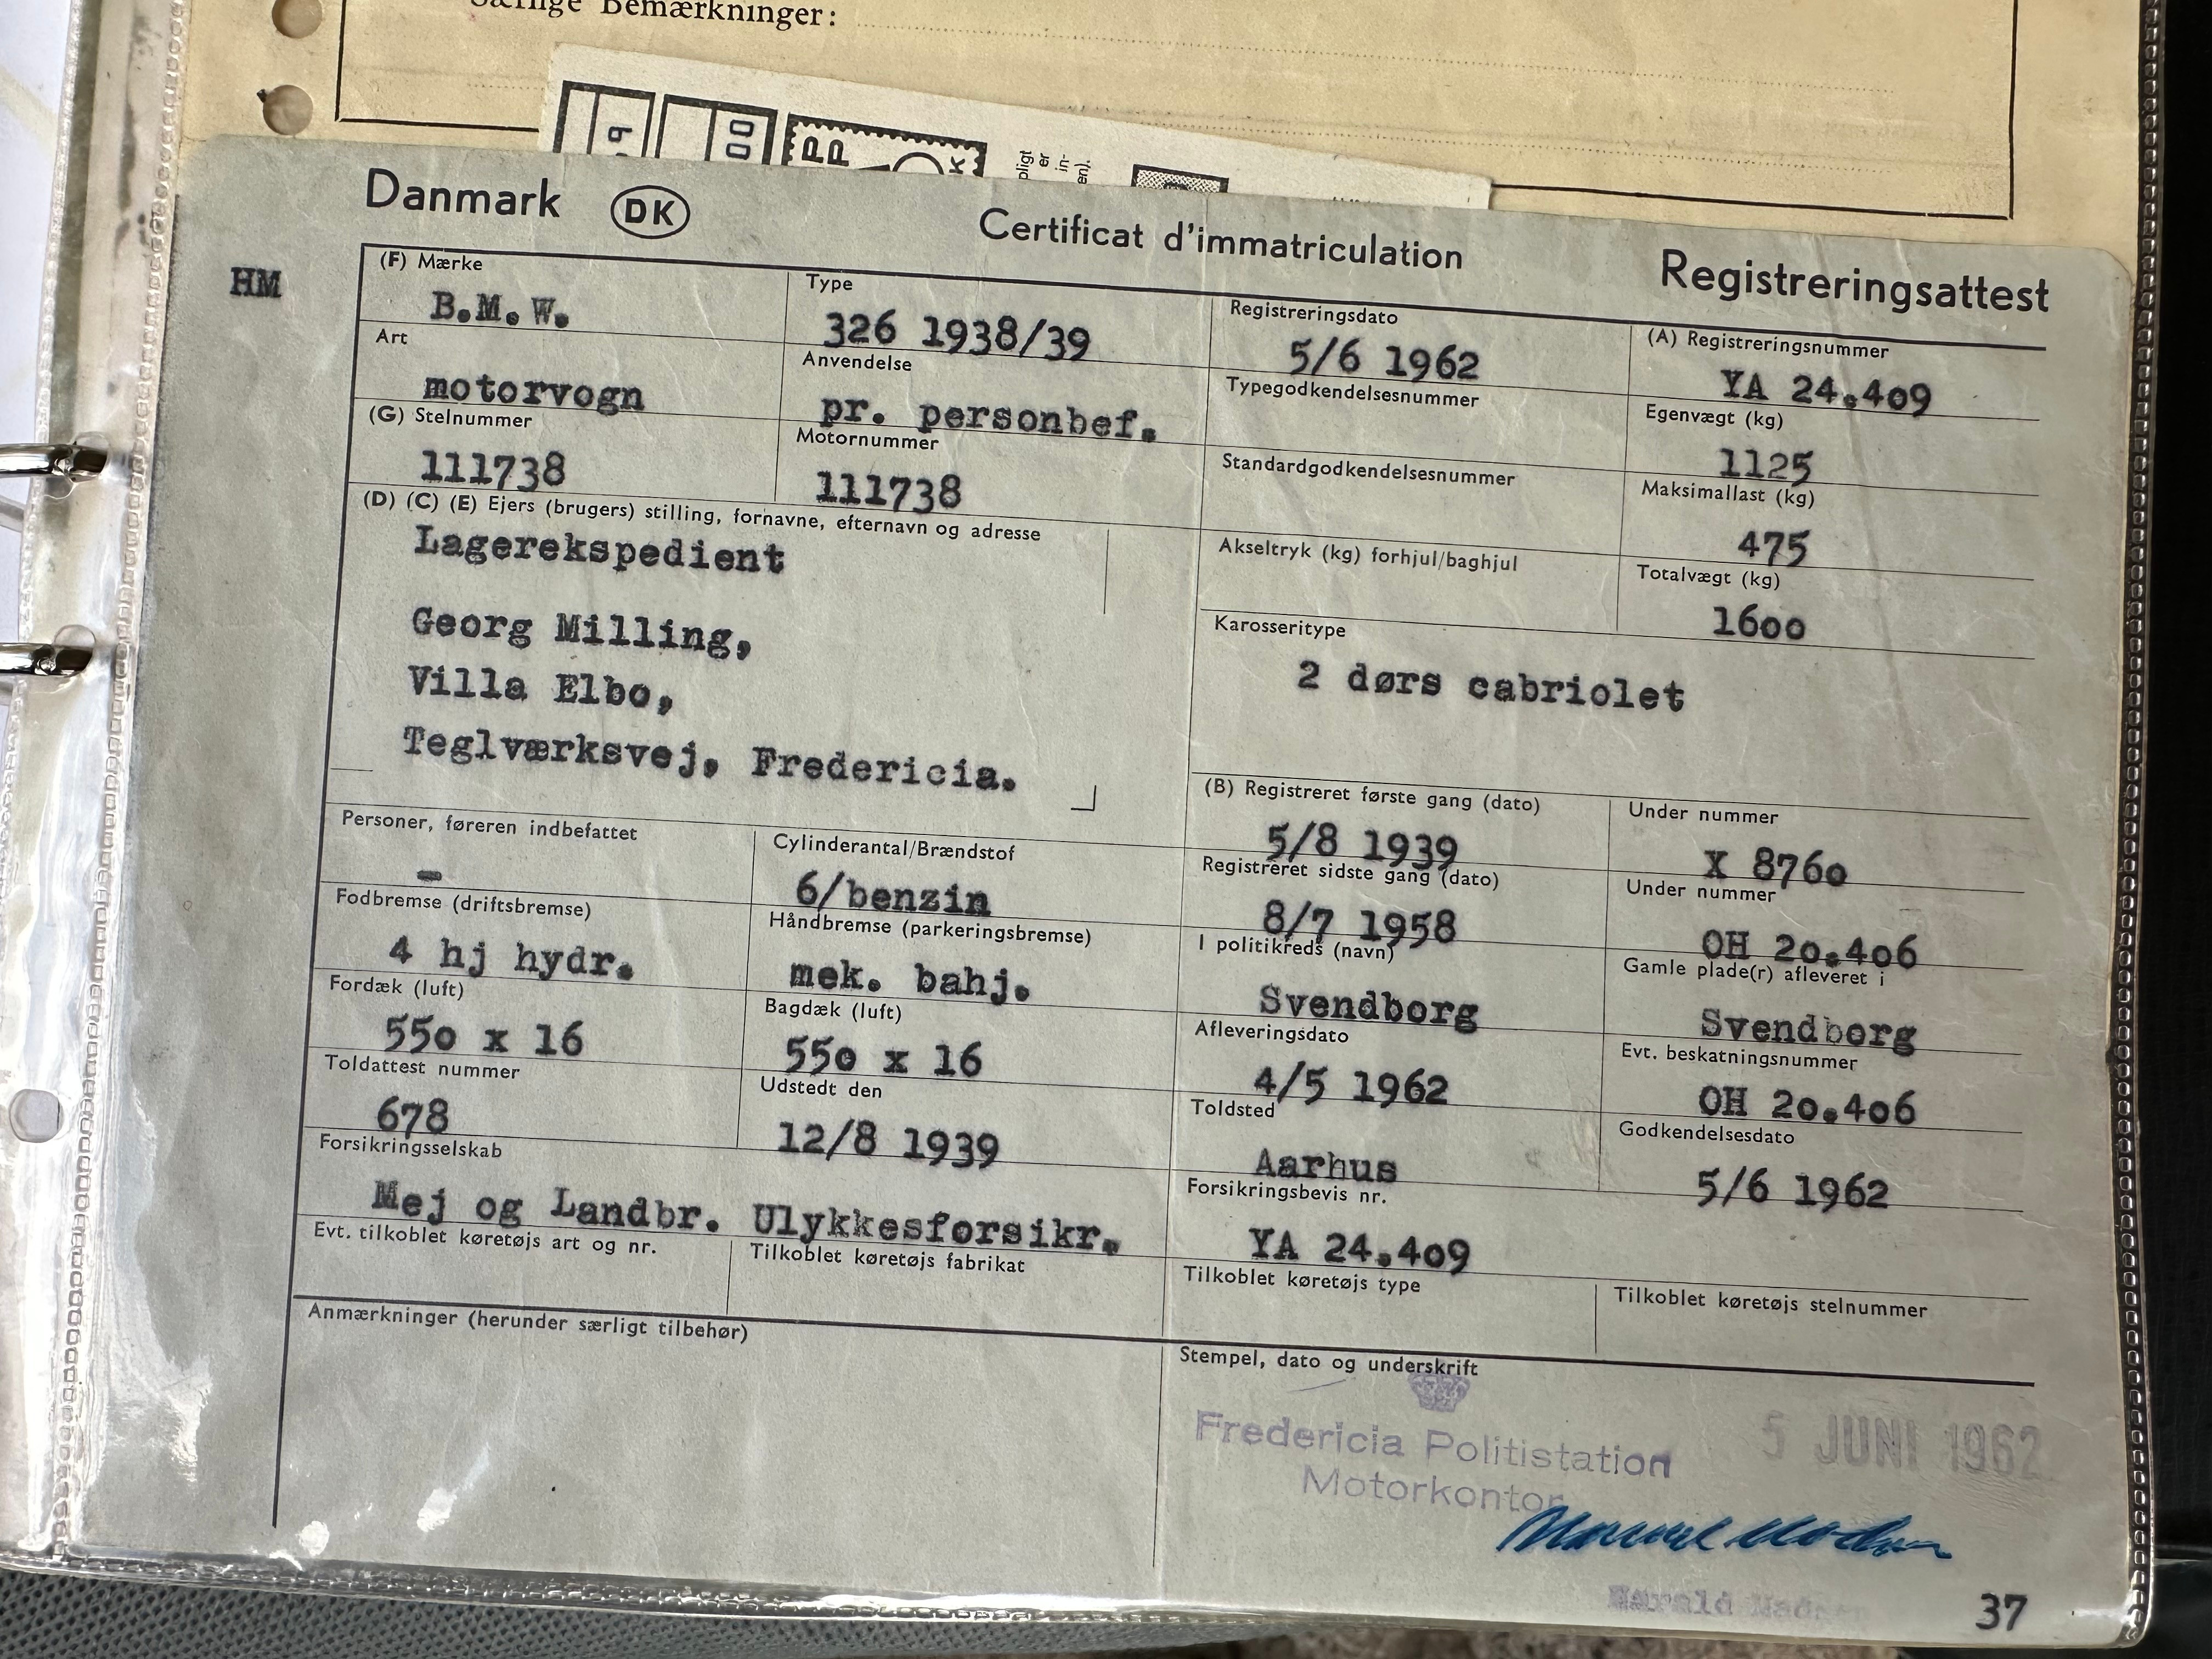 Særlige Bemærkninger:
69
00
PP
K
pligt
er
in-
en).
Danmark DK Certificat d'immatriculation Registreringsattest
HM
(F) Mærke
B.M.W.
Type
326 1938/39
Registreringsdato
5/6 1962
(A) Registreringsnummer
YA 24.409
Art
motorvogn
Anvendelse
pr. personbef.
Typegodkendelsesnummer
Egenvægt (kg)
1125
(G) Stelnummer
111738
Motornummer
111738
Standardgodkendelsesnummer
Maksimallast (kg)
475
(D) (C) (E) Ejers (brugers) stilling, fornavne, efternavn og adresse
Lagerekspedient
Georg Milling,
Villa Elbo,
Teglværksvej, Fredericia.
Akseltryk (kg) forhjul/baghjul
Totalvægt (kg)
1600
Karosseritype
2 dørs cabriolet
(B) Registreret første gang (dato)
5/8 1939
Under nummer
X 8760
Personer, føreren indbefattet
-
Cylinderantal/Brændstof
6/benzin
Registreret sidste gang (dato)
8/7 1958
Under nummer
OH 20.406
Fodbremse (driftsbremse)
4 hj hydr.
Håndbremse (parkeringsbremse)
mek. bahj.
I politikreds (navn)
Svendborg
Gamle plade(r) afleveret i
Svendborg
Fordæk (luft)
550 x 16
Bagdæk (luft)
550 x 16
Afleveringsdato
4/5 1962
Evt. beskatningsnummer
OH 20.406
Toldattest nummer
678
Udstedt den
12/8 1939
Toldsted
Aarhus
Godkendelsesdato
5/6 1962
Forsikringsselskab
Mej og Landbr. Ulykkesforsikr.
Forsikringsbevis nr.
YA 24.409
Evt. tilkoblet køretøjs art og nr.
Tilkoblet køretøjs fabrikat
Tilkoblet køretøjs type
Tilkoblet køretøjs stelnummer
Anmærkninger (herunder særligt tilbehør)
Stempel, dato og underskrift
Fredericia Politistation
Motorkontor
5 JUNI 1962
37